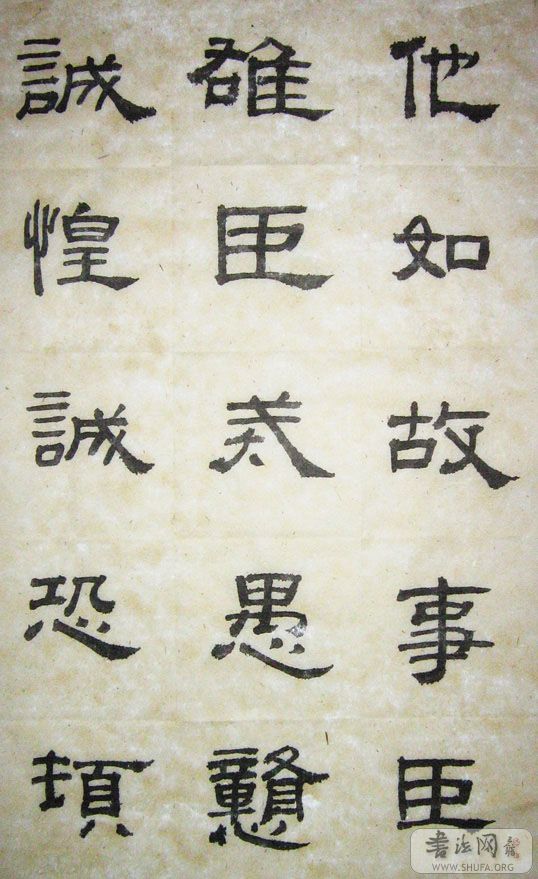 他如故事臣
雄臣戒愚戇
誠惶誠恐頓
書法网
WWW.SHUFA.ORG